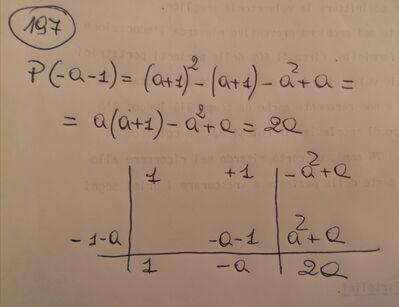 197
P(-a-1) = (a+1)² - (a+1) - a² + a =
= a(a+1) - a² + a = 2a
1 +1 -a² + a
-1-a -a-1 a² + a
1 -a 2a